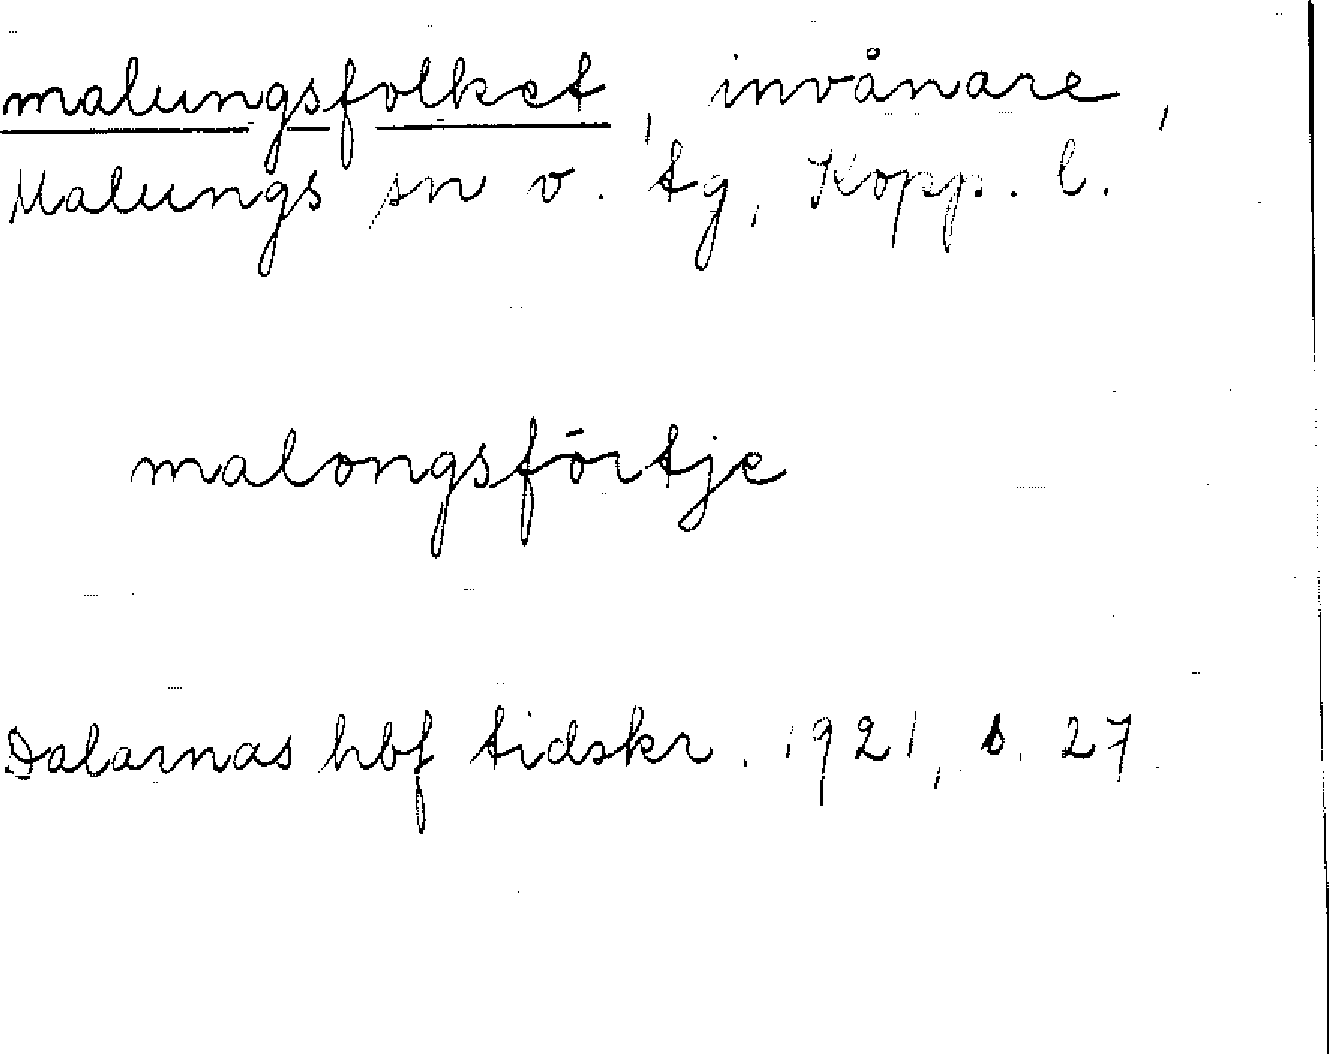 malungsfolket, invånare,
Malungs sn v. tg, Kopp. l.
malongsfōrtje
Dalarnas hbf tidskr. 1921, s. 27